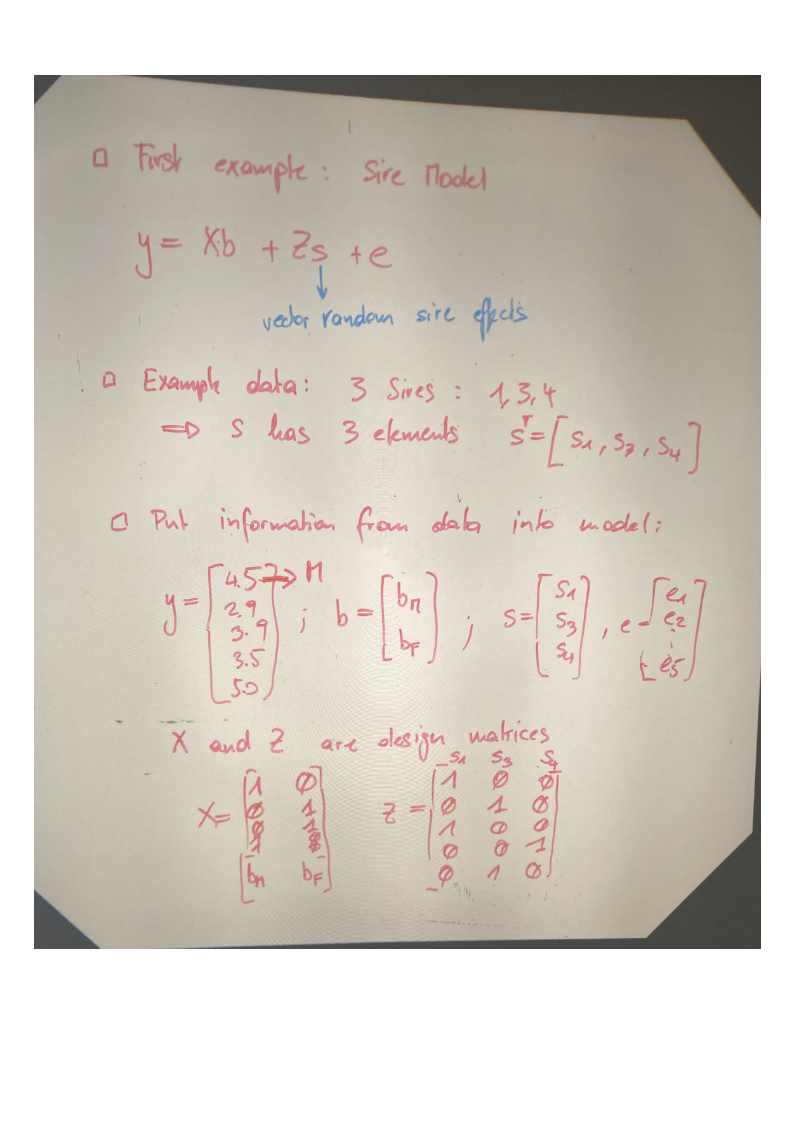 □ First example: Sire Model
y = Xb + Zs + e
↓
vector random sire effects
□ Example data: 3 Sires: 1, 3, 4
⇒ s has 3 elements sᵀ = [s₁, s₃, s₄]
□ Put information from data into model:
y = [4.5 → M; 2.9; 3.9; 3.5; 5.0]; b = [bM; bF]; s = [s₁; s₃; s₄], e = [e₁; e₂; ⋮; e₅]
X and Z are design matrices
s₁ s₃ s₄
X = [1 0; 0 1; 0 1; 1 0] Z = [1 0 0; 0 1 0; 1 0 0; 0 0 1; 0 1 0]
[bM bF]